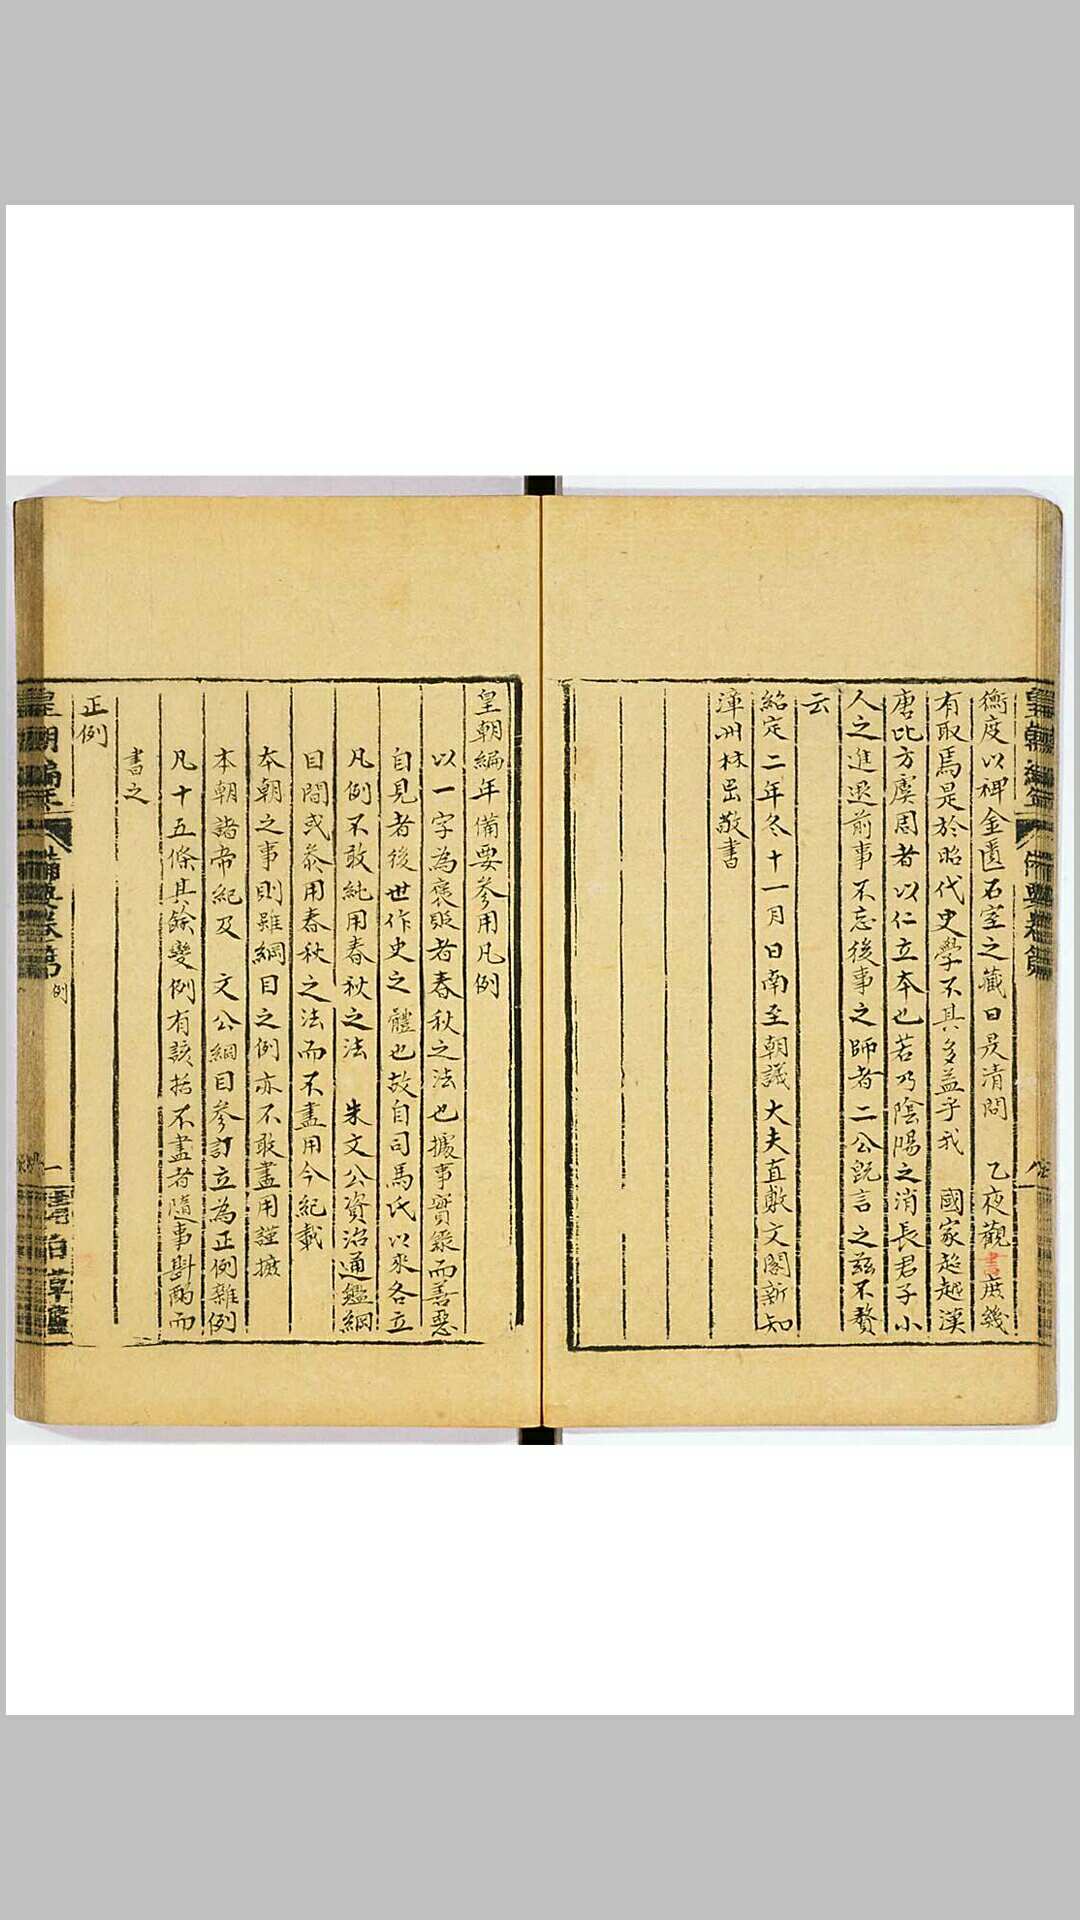 衡度以裨金匱石室之藏日是清問　乙夜觀書庶幾
有取焉是於昭代史學不其多益乎我　國家超越漢
唐比方虞周者以仁立本也若乃陰陽之消長君子小
人之進退前事不忘後事之師者二公旣言之茲不贅
云
紹定二年冬十一月日南至朝議大夫直敷文閣新知
漳州林岊敬書
皇朝編年備要參用凡例
以一字為褒貶者春秋之法也據事實錄而善惡
自見者後世作史之體也故自司馬氏以來各立
凡例不敢純用春秋之法　朱文公資治通鑑綱
目間或叅用春秋之法而不盡用今紀載
本朝之事則雖綱目之例亦不敢盡用謹摭
本朝諸帝紀及　文公綱目參訂立為正例雜例
凡十五條其餘變例有該括不盡者隨事斟酌而
書之
正例